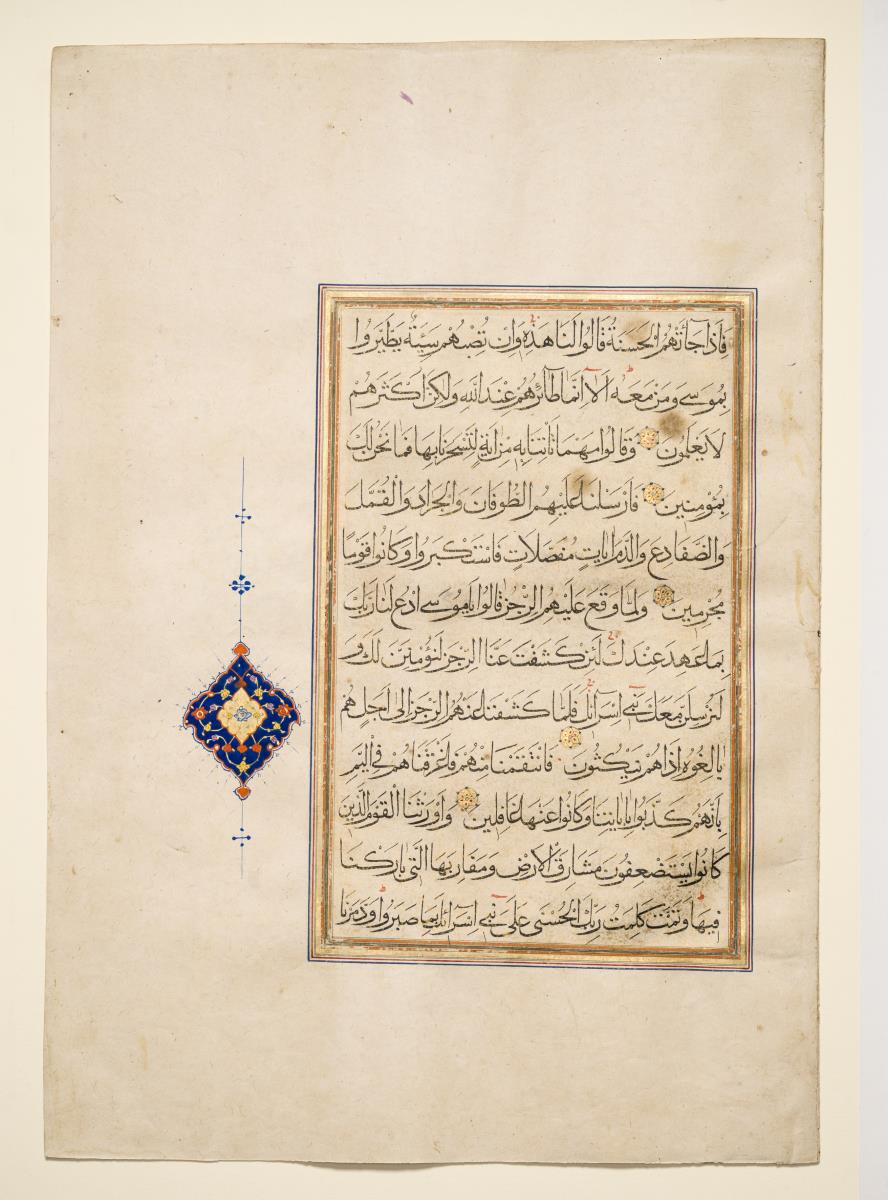 فَاِذَا جَآءَتْهُمُ الْحَسَنَةُ قَالُوا لَنَا هٰذِهٖ وَاِنْ تُصِبْهُمْ سَيِّئَةٌ يَطَّيَّرُوا
بِمُوسٰى وَمَنْ مَعَهُ اَلَآ اِنَّمَا طَآئِرُهُمْ عِنْدَ اللّٰهِ وَلٰكِنَّ اَكْثَرَهُمْ
لَا يَعْلَمُونَ وَقَالُوا مَهْمَا تَاْتِنَا بِهٖ مِنْ اٰيَةٍ لِتَسْحَرَنَا بِهَا فَمَا نَحْنُ لَكَ
بِمُؤْمِنِينَ فَاَرْسَلْنَا عَلَيْهِمُ الطُّوفَانَ وَالْجَرَادَ وَالْقُمَّلَ
وَالضَّفَادِعَ وَالدَّمَ اٰيَاتٍ مُفَصَّلَاتٍ فَاسْتَكْبَرُوا وَكَانُوا قَوْمًا
مُجْرِمِينَ وَلَمَّا وَقَعَ عَلَيْهِمُ الرِّجْزُ قَالُوا يَا مُوسَى ادْعُ لَنَا رَبَّكَ
بِمَا عَهِدَ عِنْدَكَ لَئِنْ كَشَفْتَ عَنَّا الرِّجْزَ لَنُؤْمِنَنَّ لَكَ وَ
لَنُرْسِلَنَّ مَعَكَ بَنِىٓ اِسْرَآئِلَ فَلَمَّا كَشَفْنَا عَنْهُمُ الرِّجْزَ اِلٰىٓ اَجَلٍ هُمْ
بَالِغُوهُ اِذَا هُمْ يَنْكُثُونَ فَانْتَقَمْنَا مِنْهُمْ فَاَغْرَقْنَاهُمْ فِى الْيَمِّ
بِاَنَّهُمْ كَذَّبُوا بِاٰيَاتِنَا وَكَانُوا عَنْهَا غَافِلِينَ وَاَوْرَثْنَا الْقَوْمَ الَّذِينَ
كَانُوا يُسْتَضْعَفُونَ مَشَارِقَ الْاَرْضِ وَمَغَارِبَهَا الَّتِى بَارَكْنَا
فِيهَا وَتَمَّتْ كَلِمَتُ رَبِّكَ الْحُسْنٰى عَلٰى بَنِىٓ اِسْرَآئِلَ بِمَا صَبَرُوا وَدَمَّرْنَا